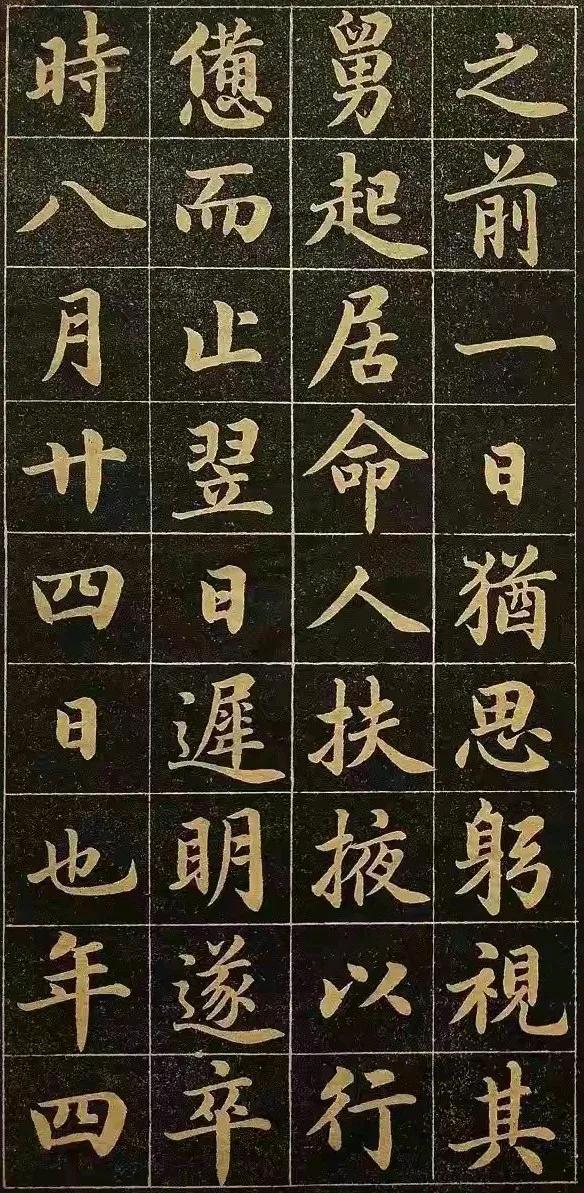 之前一日猶思躬視其
舅起居命人扶掖以行
憊而止翌日遲明遂卒
時八月廿四日也年四